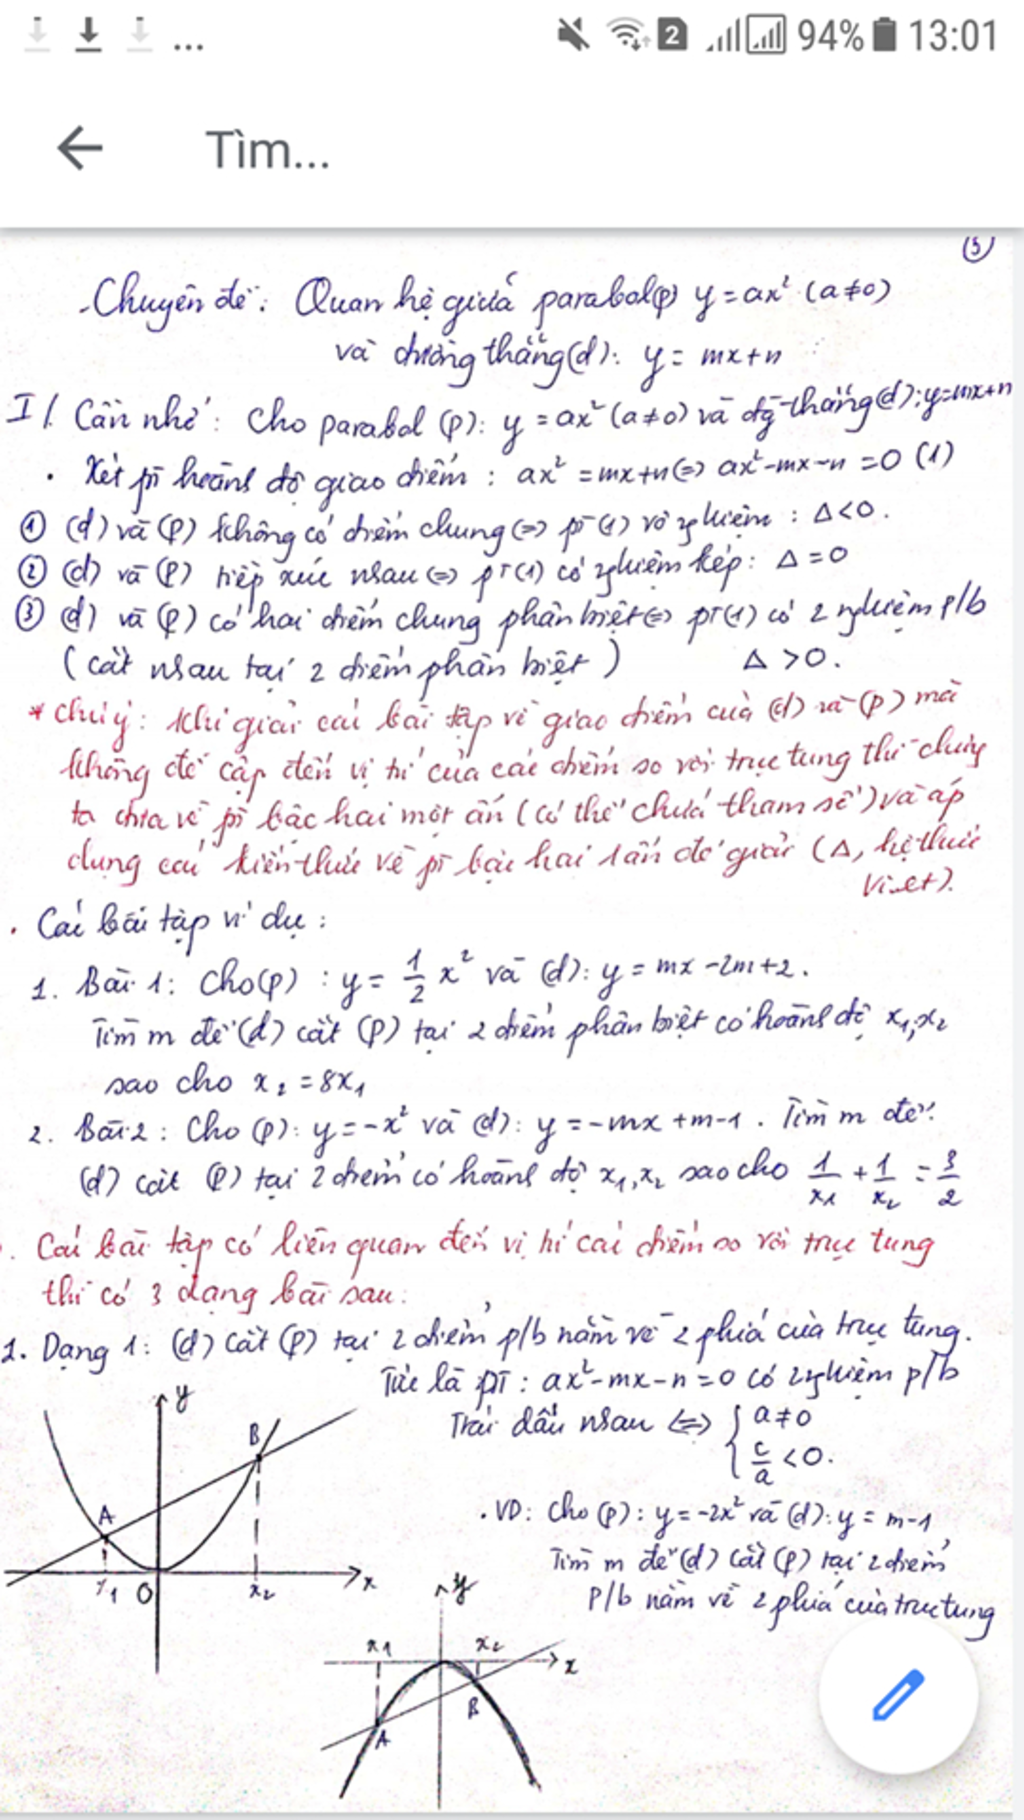 ... 2 94% 13:01
Tìm...
(5)
Chuyên đề: Quan hệ giữa parabol(P) y = ax² (a≠0)
và đường thẳng(d): y = mx+n
I/. Cần nhớ: Cho parabol (P): y = ax² (a≠0) và đg thẳng(d): y=mx+n
. Xét pT hoành độ giao điểm : ax² = mx+n ⇔ ax²-mx-n = 0 (1)
① (d) và (P) không có điểm chung ⇔ pT(1) vô nghiệm : Δ<0.
② (d) và (P) tiếp xúc nhau ⇔ pT(1) có nghiệm kép: Δ = 0
③ (d) và (P) có hai điểm chung phân biệt ⇔ pT(1) có 2 nghiệm p/b
(cắt nhau tại 2 điểm phân biệt) Δ >0.
* Chú ý: Khi giải các bài tập về giao điểm của (d) và (P) mà
không đề cập đến vị trí của các điểm so với trục tung thì chúng
ta đưa về pT bậc hai một ẩn (có thể chứa tham số) và áp
dụng các kiến thức về pT bậc hai 1 ẩn để giải (Δ, hệ thức
Vi-et).
. Các bài tập ví dụ :
1. Bài 1: Cho(P) : y = 1/2 x² và (d): y = mx -2m+2.
Tìm m để (d) cắt (P) tại 2 điểm phân biệt có hoành độ x₁,x₂
sao cho x₂ = 8x₁
2. Bài 2: Cho (P): y = -x² và (d): y = -mx +m-1. Tìm m để
(d) cắt (P) tại 2 điểm có hoành độ x₁, x₂ sao cho 1/x₁ + 1/x₂ = 3/2
. Các bài tập có liên quan đến vị trí các điểm so với trục tung
thì có 3 dạng bài sau:
1. Dạng 1: (d) cắt (P) tại 2 điểm p/b nằm về 2 phía của trục tung.
Tức là pT : ax²-mx-n = 0 có 2 nghiệm p/b
Trái dấu nhau ⇔ { a≠0
c/a <0.
y
B
A
x₁ O x₂ x
. VD: Cho (P): y = -2x² và (d): y = m-1,
Tìm m để (d) cắt (P) tại 2 điểm
p/b nằm về 2 phía của trục tung
y
x₁ x₂ x
B
A